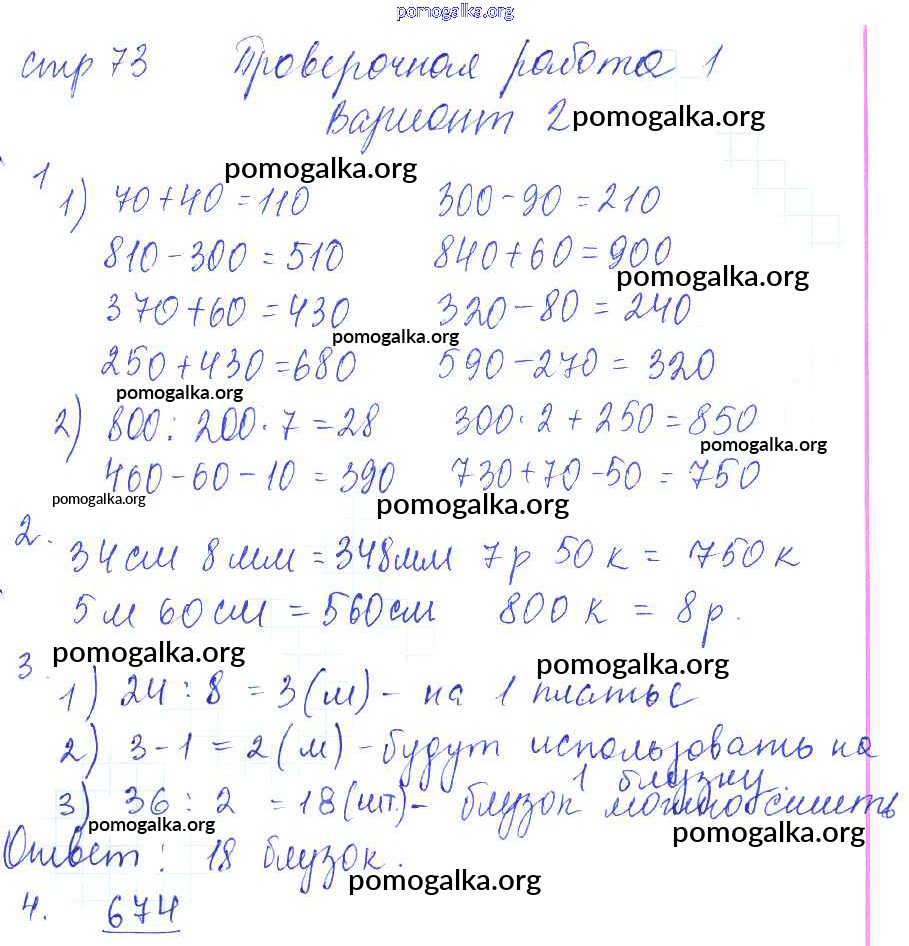 pomogalka.org
стр 73 Проверочная работа 1
Вариант 2 pomogalka.org
pomogalka.org
1
1) 70+40=110 300-90=210
810-300=510 840+60=900
pomogalka.org
370+60=430 320-80=240
pomogalka.org
250+430=680 590-270=320
pomogalka.org
2) 800:200·7=28 300·2+250=850
pomogalka.org
460-60-10=390 730+70-50=750
pomogalka.org
pomogalka.org
2.
34см 8мм=348мм 7р 50к=750к
5м 60см=560см 800к=8р.
pomogalka.org
pomogalka.org
3
1) 24:8=3(м)- на 1 платье
2) 3-1=2(м)-будут использовать на
1 блузку.
3) 36:2=18(шт.)- блузок можно сшить
pomogalka.org
pomogalka.org
Ответ: 18 блузок.
pomogalka.org
4. 674